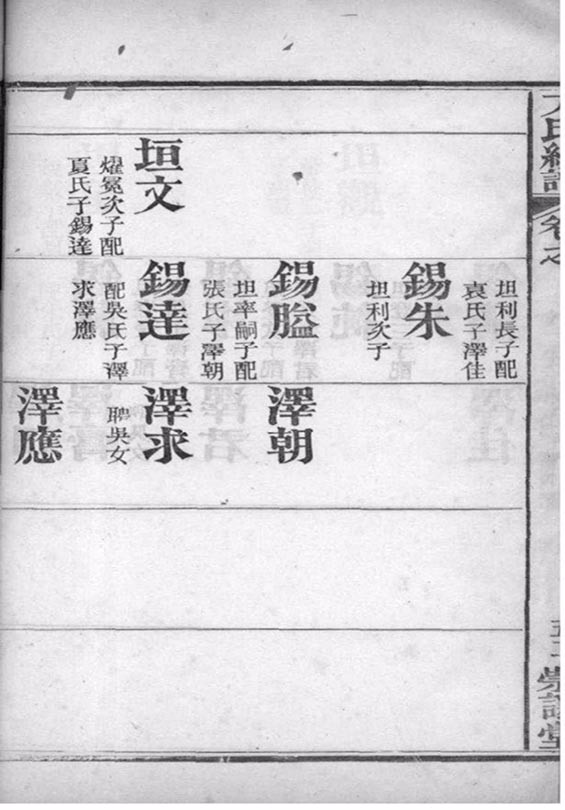 垣文
燿冕次子配
夏氏子錫達
坦利長子配
袁氏子澤佳
錫朱
坦利次子
錫膉
坦率嗣子配
張氏子澤朝
錫達
配吳氏子澤
求澤應
澤朝
澤求
聘吳女
澤應